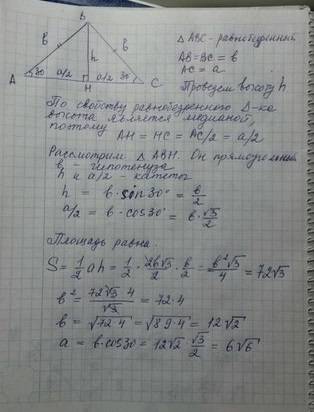 B
b b
h
A 30 a/2 a/2 30 C
H
△ ABC - равнобедренный
AB=BC = b
AC = a
Проведем высоту h
По свойству равнобедренного Δ-ка
высота является медианой,
поэтому AH = HC = AC/2 = a/2
Рассмотрим △ ABH. Он прямоугольный
b - гипотенуза
h и a/2 - катеты
h = b·sin30° = b/2
a/2 = b·cos30° = b·√3/2
Площадь равна
S = 1/2 ah = 1/2 · 2b√3/2 · b/2 = b²√3/4 = 72√3
b² = 72√3·4/√3 = 72·4
b = √72·4 = √8·9·4 = 12√2
a = b·cos30 = 12√2 · √3/2 = 6√6